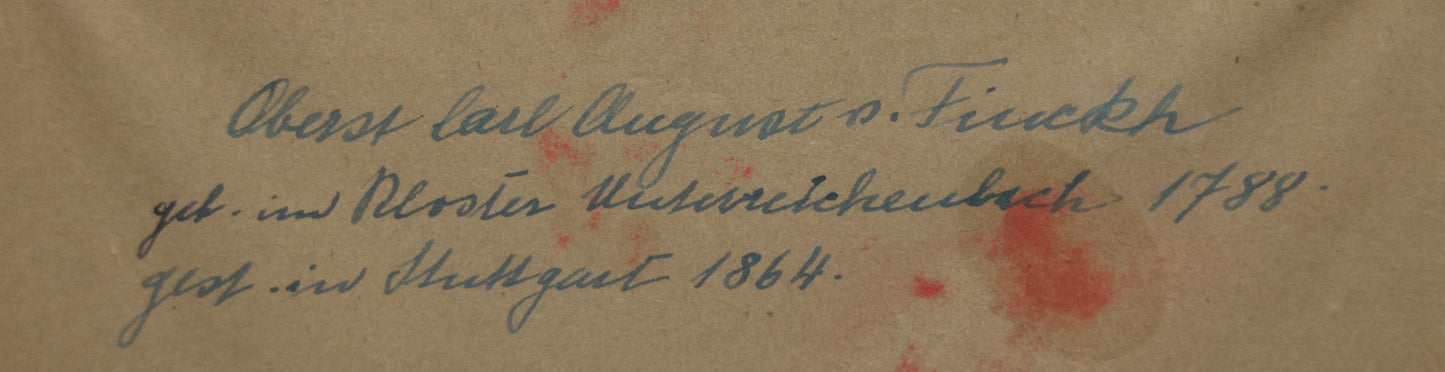 Oberst Carl August v. Finckh
geb. im Kloster Unterreichenbach 1788.
gest. in Stuttgart 1864.